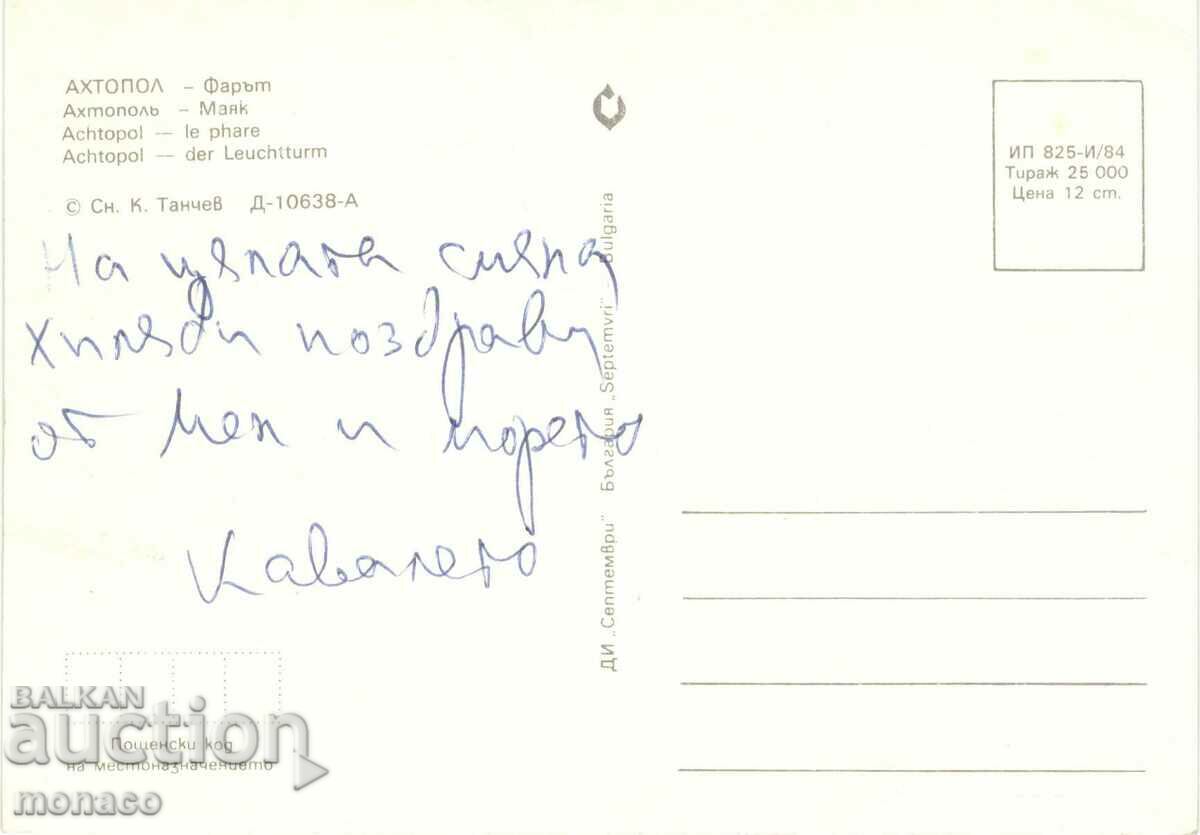 АХТОПОЛ – Фарът
Ахтополь – Маяк
Achtopol — le phare
Achtopol — der Leuchtturm
© Сн. К. Танчев Д-10638-А
ИП 825-И/84
Тираж 25 000
Цена 12 ст.
На цялата смяна
хиляди поздрави
от мен и морето
Кавалето
ДИ „Септември" България „Septemvri" Bulgaria
Пощенски код
на местоназначението
BALKAN
auction
monaco